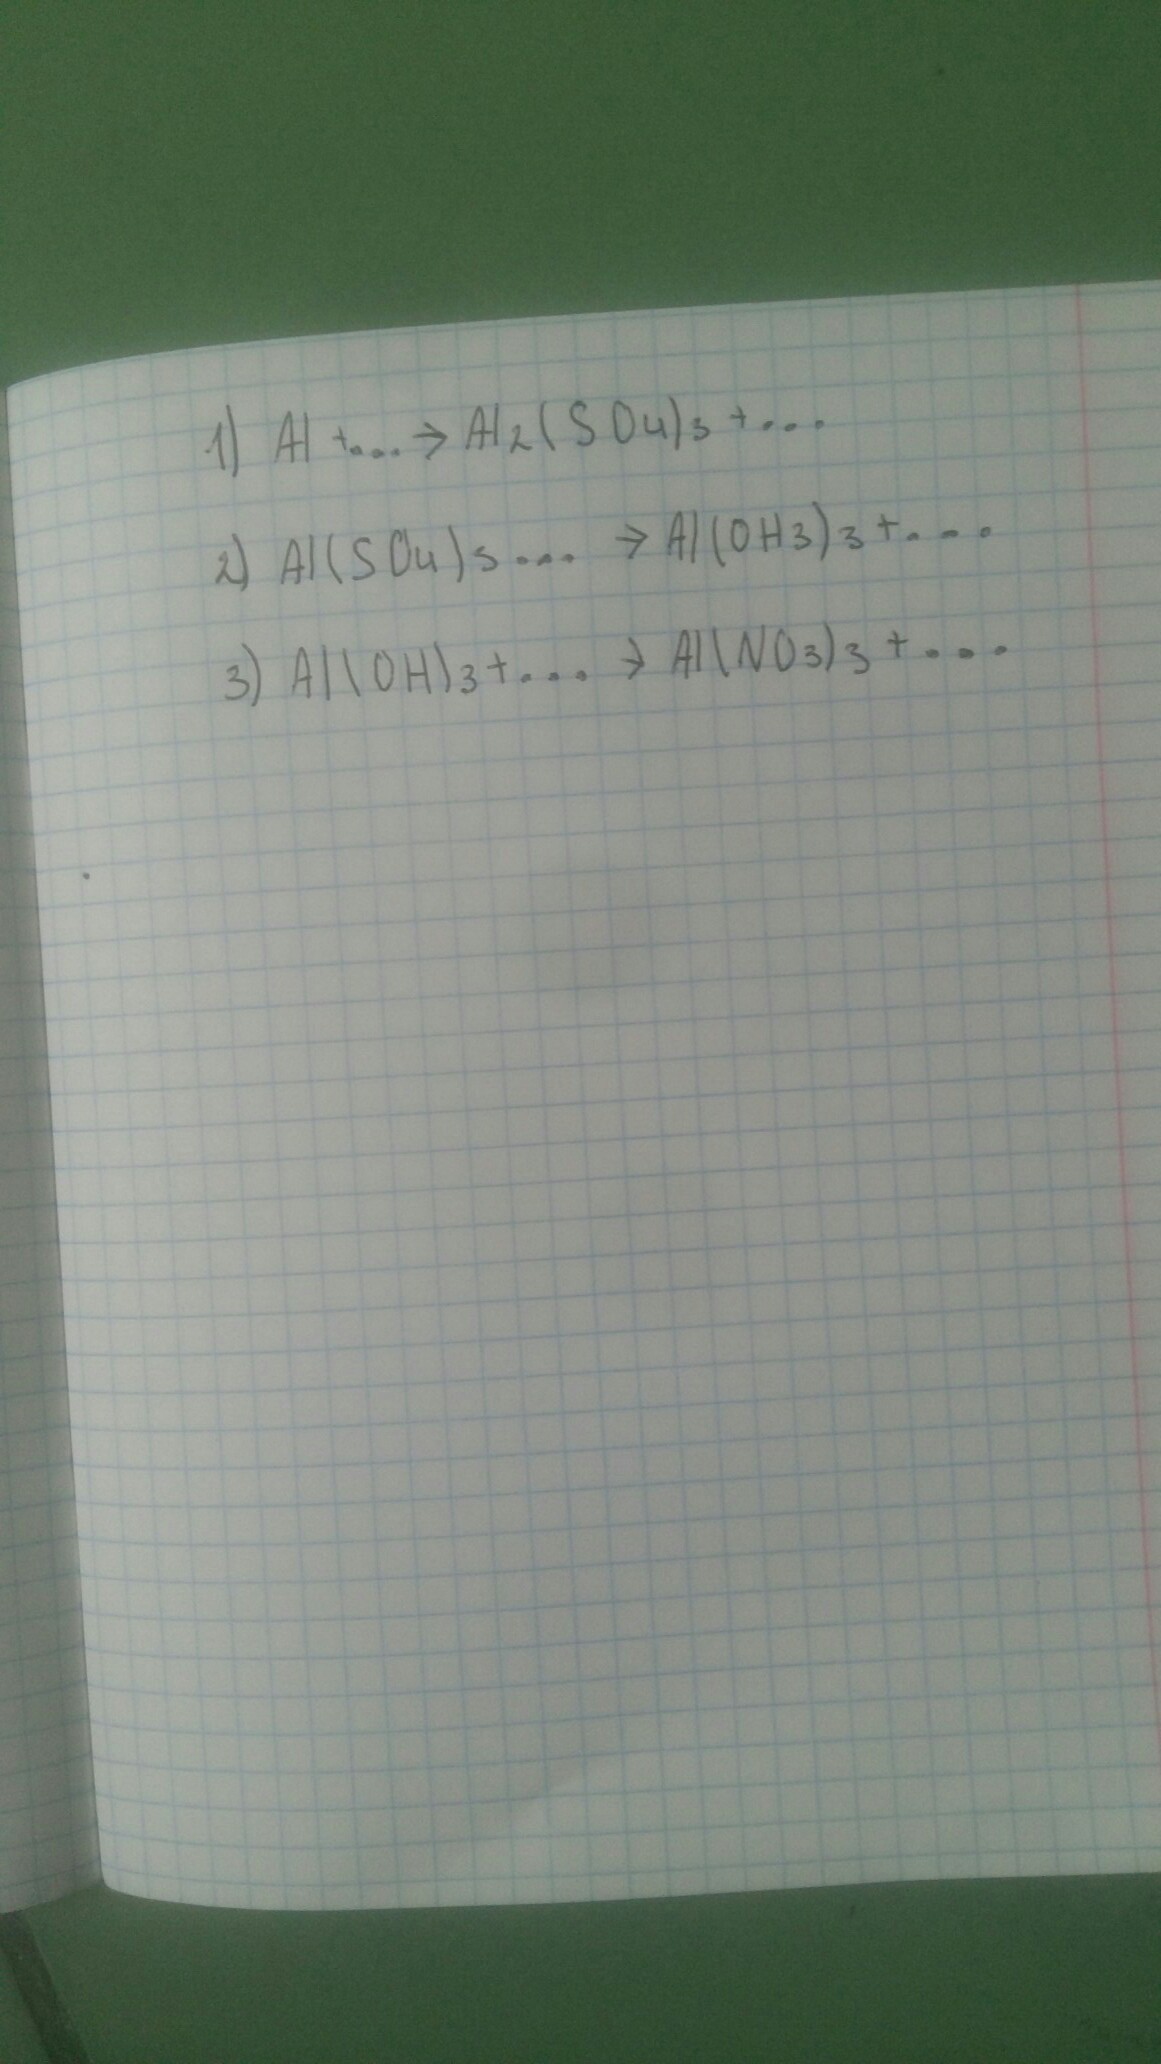 1) Al +... → Al2(SO4)3 +...
2) Al(SO4)3 ... → Al(OH3)3 +...
3) Al(OH)3 +... → Al(NO3)3 +...